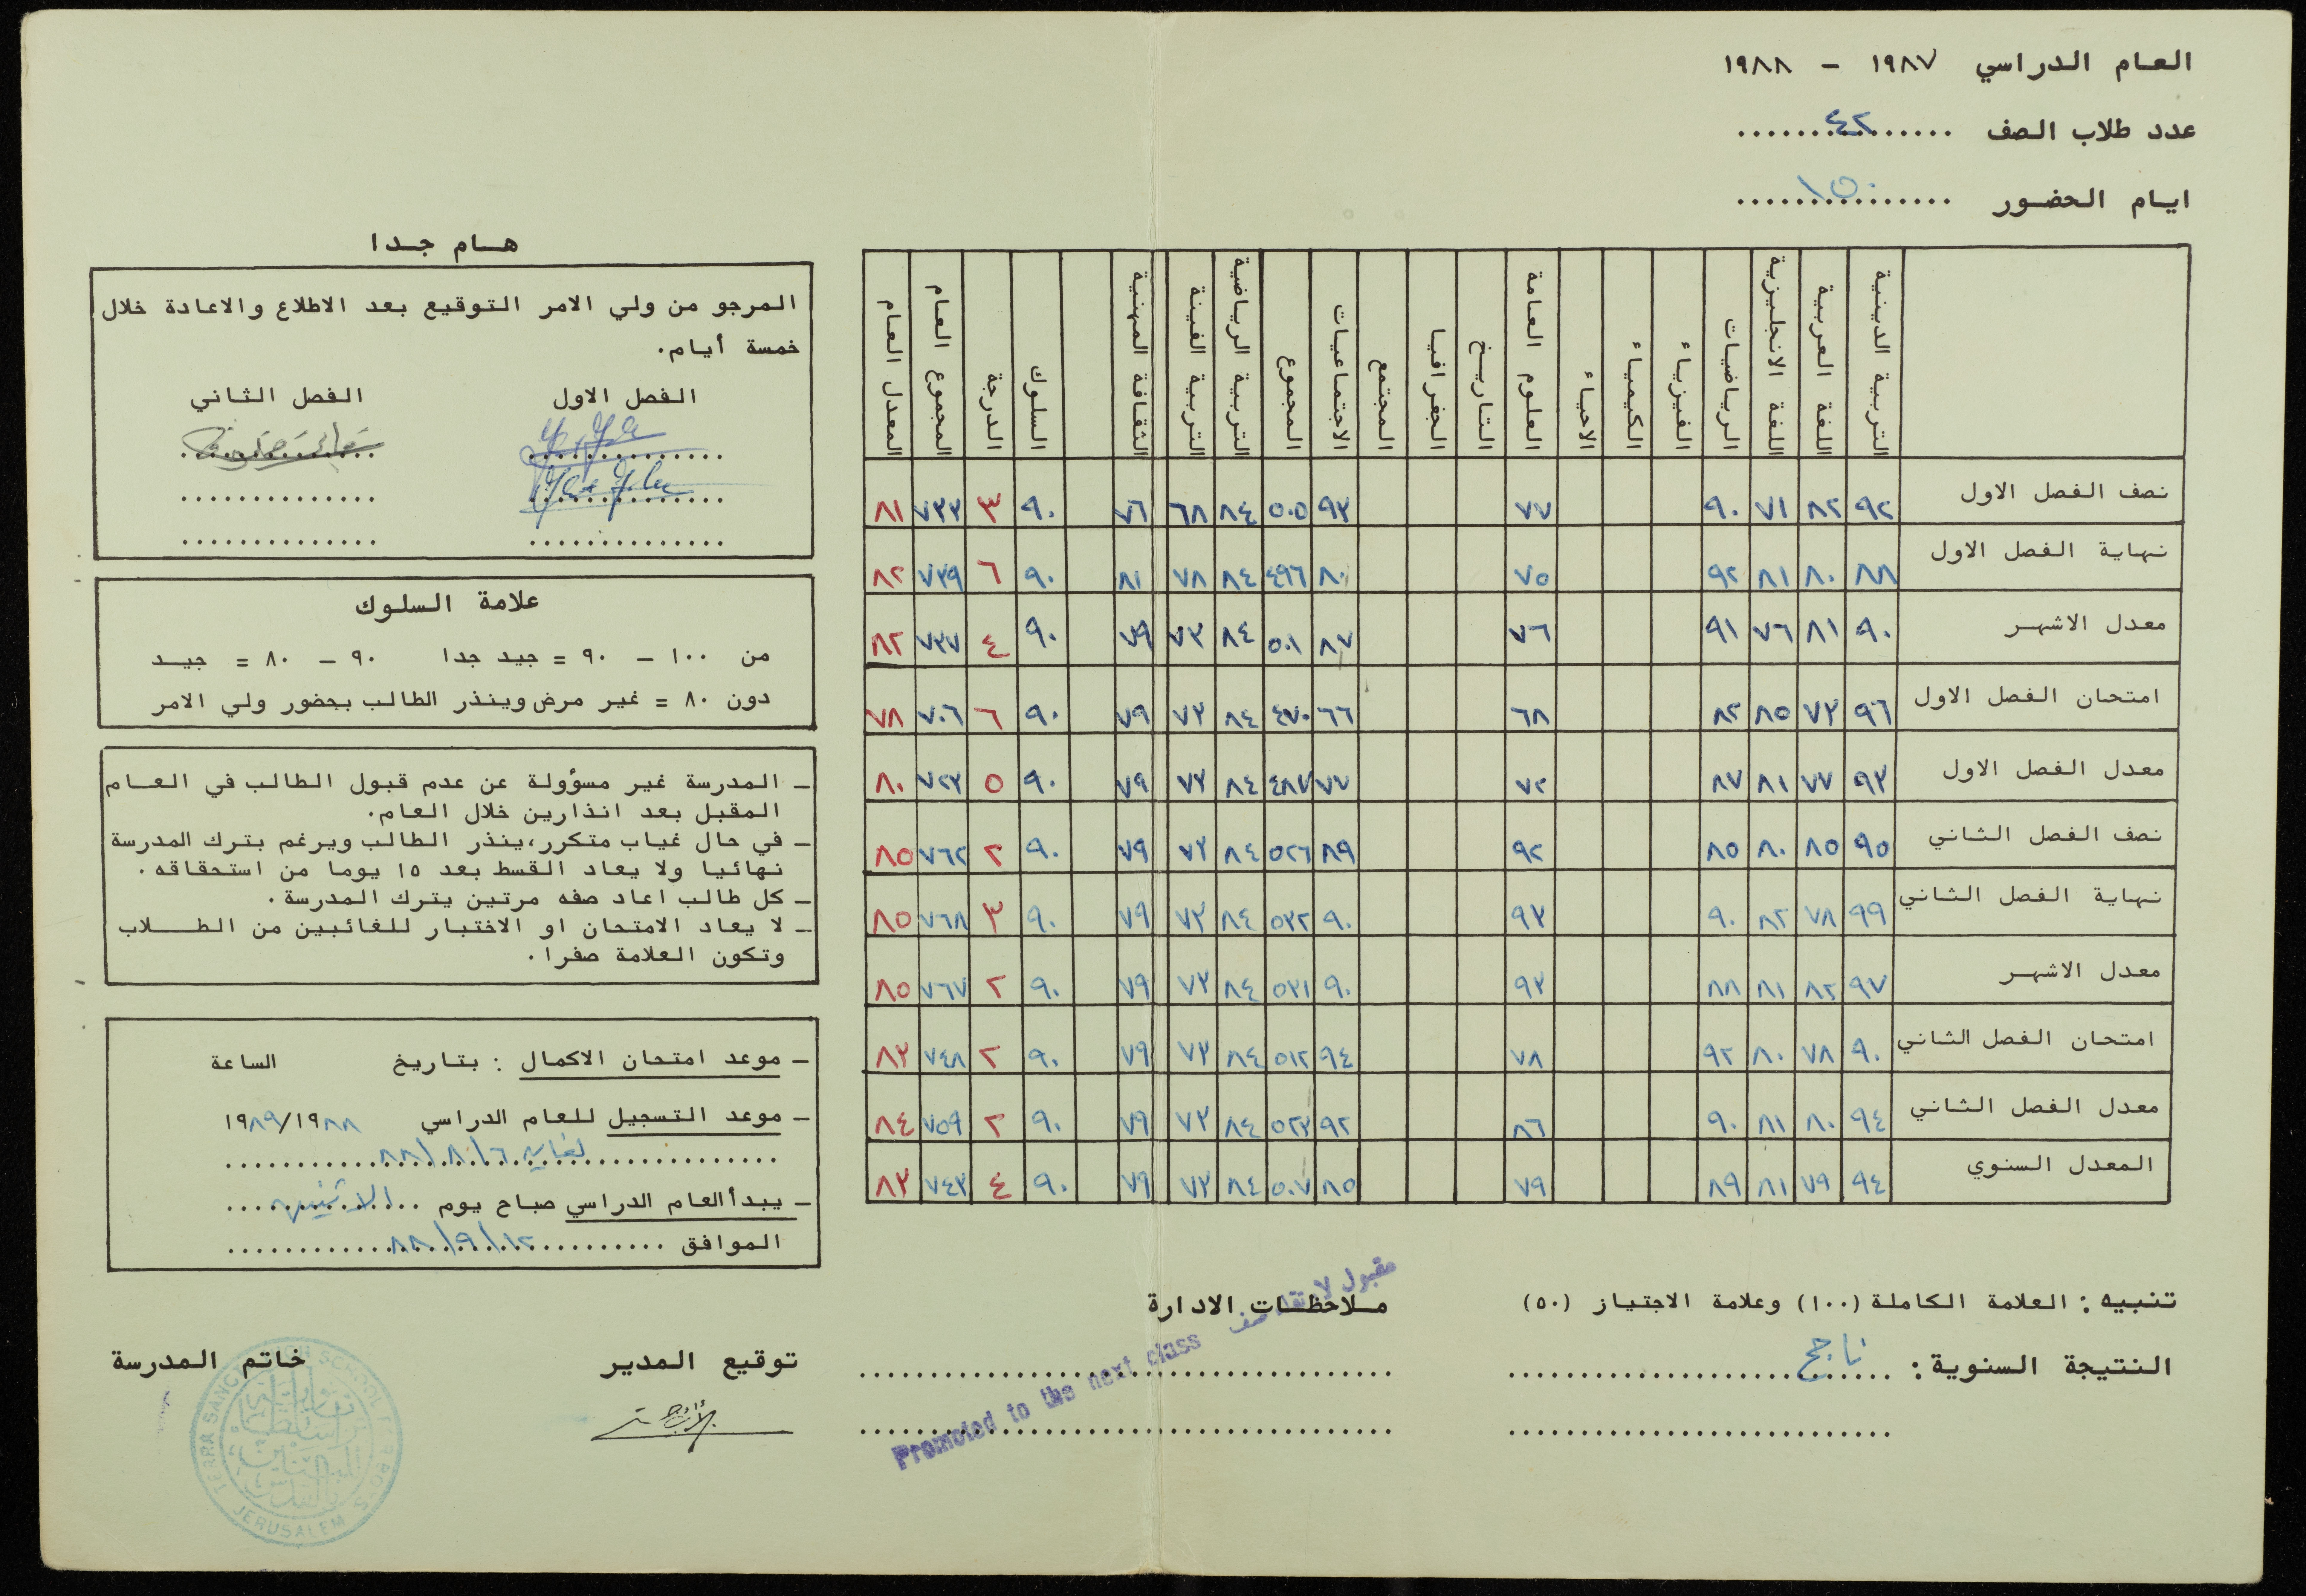 العام الدراسي ١٩٨٧ - ١٩٨٨
عدد طلاب الصف ٤٢
ايام الحضور ١٥٠
التربية الدينية
اللغة العربية
اللغة الانجليزية
الرياضيات
الفيزياء
الكيمياء
الاحياء
العلوم العامة
التاريخ
الجغرافيا
المجتمع
الاجتماعيات
المجموع
التربية الرياضية
التربية الفينة
الثقافة المهنية
السلوك
الدرجة
المجموع العام
المعدل العام
نصف الفصل الاول ٩٢ ٨٢ ٧١ ٩٠ ٧٧ ٩٣ ٥٠٥ ٨٤ ٦٨ ٧٦ ٩٠ ٣ ٧٣٣ ٨١
نهاية الفصل الاول ٨٨ ٨٠ ٨١ ٩٢ ٧٥ ٨٠ ٤٩٦ ٨٤ ٧٨ ٨١ ٩٠ ٦ ٧٣٩ ٨٢
معدل الاشهر ٩٠ ٨١ ٧٦ ٩١ ٧٦ ٨٧ ٥٠١ ٨٤ ٧٣ ٧٩ ٩٠ ٤ ٧٣٧ ٨٢
امتحان الفصل الاول ٩٦ ٧٣ ٨٥ ٨٢ ٦٨ ٦٦ ٤٧٠ ٨٤ ٧٣ ٧٩ ٩٠ ٦ ٧٠٦ ٧٨
معدل الفصل الاول ٩٣ ٧٧ ٨١ ٨٧ ٧٢ ٧٧ ٤٨٧ ٨٤ ٧٣ ٧٩ ٩٠ ٥ ٧٢٣ ٨٠
نصف الفصل الثاني ٩٥ ٨٥ ٨٠ ٨٥ ٩٢ ٨٩ ٥٢٦ ٨٤ ٧٣ ٧٩ ٩٠ ٢ ٧٦٢ ٨٥
نهاية الفصل الثاني ٩٩ ٧٨ ٨٢ ٩٠ ٩٣ ٩٠ ٥٣٢ ٨٤ ٧٣ ٧٩ ٩٠ ٣ ٧٦٨ ٨٥
معدل الاشهر ٩٧ ٨٢ ٨١ ٨٨ ٩٣ ٩٠ ٥٣١ ٨٤ ٧٣ ٧٩ ٩٠ ٢ ٧٦٧ ٨٥
امتحان الفصل الثاني ٩٠ ٧٨ ٨٠ ٩٢ ٧٨ ٩٤ ٥١٢ ٨٤ ٧٣ ٧٩ ٩٠ ٢ ٧٤٨ ٨٣
معدل الفصل الثاني ٩٤ ٨٠ ٨١ ٩٠ ٨٦ ٩٢ ٥٢٣ ٨٤ ٧٣ ٧٩ ٩٠ ٢ ٧٥٩ ٨٤
المعدل السنوي ٩٤ ٧٩ ٨١ ٨٩ ٧٩ ٨٥ ٥٠٧ ٨٤ ٧٣ ٧٩ ٩٠ ٤ ٧٤٣ ٨٣
تنبيه : العلامة الكاملة (١٠٠) وعلامة الاجتياز (٥٠)
النتيجة السنوية : ناجح
ملاحظات الادارة
مقبول لا صف
Promoted to the next class
هام جدا
المرجو من ولي الامر التوقيع بعد الاطلاع والاعادة خلال
خمسة أيام.
الفصل الاول الفصل الثاني
علامة السلوك
من ١٠٠ - ٩٠ = جيد جدا ٩٠ - ٨٠ = جيد
دون ٨٠ = غير مرض وينذر الطالب بحضور ولي الامر
- المدرسة غير مسؤولة عن عدم قبول الطالب في العام
المقبل بعد انذارين خلال العام.
- في حال غياب متكرر، ينذر الطالب ويرغم بترك المدرسة
نهائيا ولا يعاد القسط بعد ١٥ يوما من استحقاقه .
- كل طالب اعاد صفه مرتين يترك المدرسة .
- لا يعاد الامتحان او الاختبار للغائبين من الطلاب
وتكون العلامة صفرا .
- موعد امتحان الاكمال : بتاريخ الساعة
- موعد التسجيل للعام الدراسي ١٩٨٨/١٩٨٩
لغاية ٨٨/٨/٦
- يبدأ العام الدراسي صباح يوم الاثنين
الموافق ٨٨/٩/١٢
توقيع المدير
خاتم المدرسة
TERRA SANCTA HIGH SCHOOL FOR BOYS
JERUSALEM